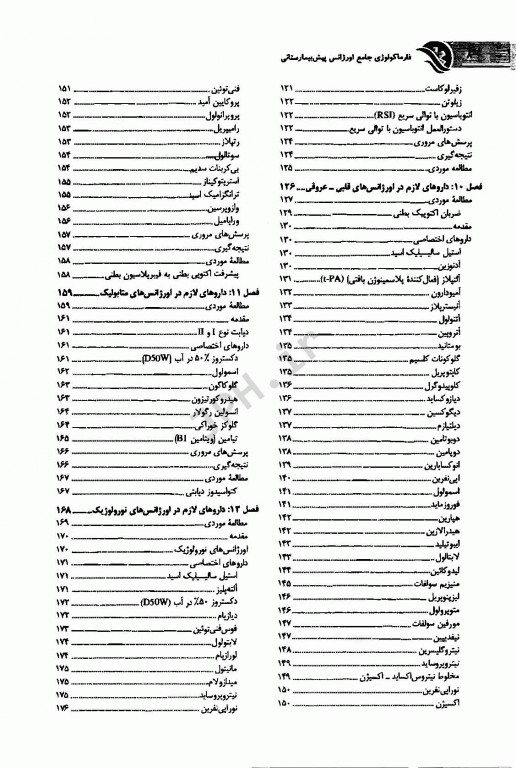 ۸
فارماکولوژی جامع اورژانس پیش‌بیمارستانی
زفیرلوکاست ۱۲۱
زیلوتن ۱۲۲
انتوباسیون با توالی سریع (RSI) ۱۲۲
دستورالعمل انتوباسیون با توالی سریع ۱۲۲
پرسش‌های مروری ۱۲۴
نتیجه‌گیری ۱۲۴
مطالعه موردی ۱۲۵
فصل ۱۰: داروهای لازم در اورژانس‌های قلبی ـ عروقی ۱۲۶
مطالعهٔ موردی ۱۲۷
ضربان اکتوپیک بطنی ۱۲۹
مقدمه ۱۳۰
داروهای اختصاصی ۱۳۰
استیل سالیسیلیک اسید ۱۳۰
آدنوزین ۱۳۰
آلتپلاز (فعال‌کنندهٔ پلاسمینوژن بافتی) (t-PA) ۱۳۱
آمیودارون ۱۳۲
آنیسترپلاز ۱۳۳
آتنولول ۱۳۴
آتروپین ۱۳۴
بومتانید ۱۳۵
گلوکونات کلسیم ۱۳۵
کاپتوپریل ۱۳۵
کلوپیدوگرل ۱۳۶
دیازوکساید ۱۳۶
دیگوکسین ۱۳۷
دیلتیازم ۱۳۷
دوبوتامین ۱۳۸
دوپامین ۱۳۸
انوکساپارین ۱۳۹
اپی‌نفرین ۱۴۰
اسمولول ۱۴۱
فوروزماید ۱۴۱
هپارین ۱۴۲
هیدرالازین ۱۴۲
ایبوتیلید ۱۴۳
لابتالول ۱۴۳
لیدوکائین ۱۴۴
منیزیم سولفات ۱۴۵
لیزینوپریل ۱۴۶
متوپرولول ۱۴۶
مورفین سولفات ۱۴۷
نیفدیپین ۱۴۷
نیتروگلیسرین ۱۴۸
نیتروپروساید ۱۴۹
مخلوط نیتروس‌اکساید ـ اکسیژن ۱۴۹
نوراپی‌نفرین ۱۵۰
اکسیژن ۱۵۰
فنی‌توئین ۱۵۱
پروکایین آمید ۱۵۲
پروپرانولول ۱۵۲
رامیپریل ۱۵۳
رتپلاز ۱۵۳
سوتالول ۱۵۴
بی‌کربنات سدیم ۱۵۴
استرپتوکیناز ۱۵۵
ترانگزامیک اسید ۱۵۵
وازوپرسین ۱۵۶
وراپامیل ۱۵۶
پرسش‌های مروری ۱۵۷
نتیجه‌گیری ۱۵۷
مطالعهٔ موردی ۱۵۸
پیشرفت اکتوپی بطنی به فیبریلاسیون بطنی ۱۵۸
فصل ۱۱: داروهای لازم در اورژانس‌های متابولیک ۱۵۹
مطالعهٔ موردی ۱۵۹
مقدمه ۱۶۱
دیابت نوع I و II ۱۶۱
داروهای اختصاصی ۱۶۱
دکستروز ۵۰٪ در آب (D50W) ۱۶۱
اسمولول ۱۶۲
گلوکاگون ۱۶۳
هیدروکورتیزون ۱۶۳
انسولین رگولار ۱۶۴
گلوکز خوراکی ۱۶۴
تیامین (ویتامین B1) ۱۶۵
پرسش‌های مروری ۱۶۶
نتیجه‌گیری ۱۶۶
مطالعهٔ موردی ۱۶۷
کتواسیدوز دیابتی ۱۶۷
فصل ۱۲: داروهای لازم در اورژانس‌های نورولوژیک ۱۶۸
مطالعهٔ موردی ۱۶۹
مقدمه ۱۷۰
اورژانس‌های نورولوژیک ۱۷۰
داروهای اختصاصی ۱۷۱
استیل سالیسیلیک اسید ۱۷۱
آلته‌پلیز ۱۷۱
دکستروز ۵۰٪ در آب (D50W) ۱۷۲
دیازپام ۱۷۲
فوس‌فنی‌توئین ۱۷۳
لابتولول ۱۷۴
لورازپام ۱۷۴
مانیتول ۱۷۵
میدازولام ۱۷۵
نیتروپروساید ۱۷۵
نوراپی‌نفرین ۱۷۶